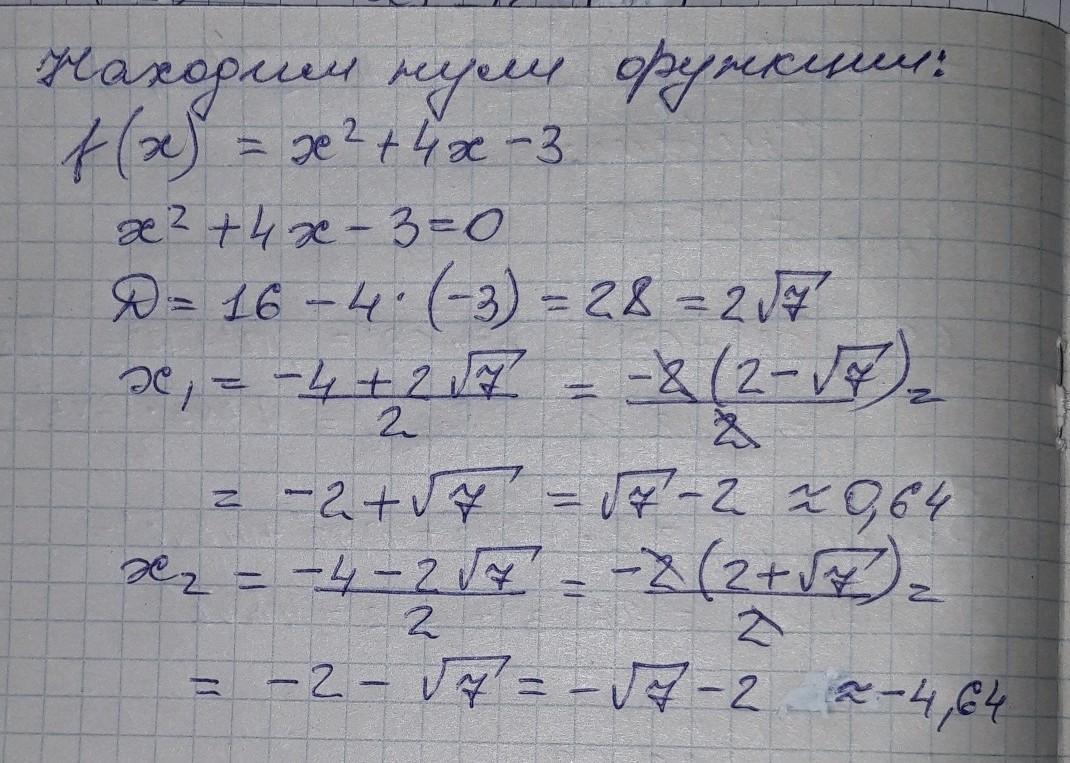 Находим нули функции:
f(x) = x² + 4x - 3
x² + 4x - 3 = 0
D = 16 - 4 · (-3) = 28 = 2√7
x₁ = (-4 + 2√7)/2 = (-2(2 - √7))/2 =
= -2 + √7 = √7 - 2 ≈ 0,64
x₂ = (-4 - 2√7)/2 = (-2(2 + √7))/2 =
= -2 - √7 = -√7 - 2 ≈ -4,64